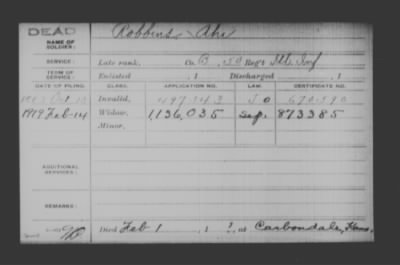 DEAD
NAME OF SOLDIER: Robbins, Abe
SERVICE: Late rank, Co. B, 50 Reg't Ills. Inf
TERM OF SERVICE: Enlisted , 1 Discharged , 1
DATE OF FILING. CLASS. APPLICATION NO. LAW. CERTIFICATE NO.
Invalid,
1919 Feb-14 Widow, 1,136,035 873385
Minor,
ADDITIONAL SERVICES:
REMARKS:
Died Feb 1 , 1 ?, at Carbondale, Kans.